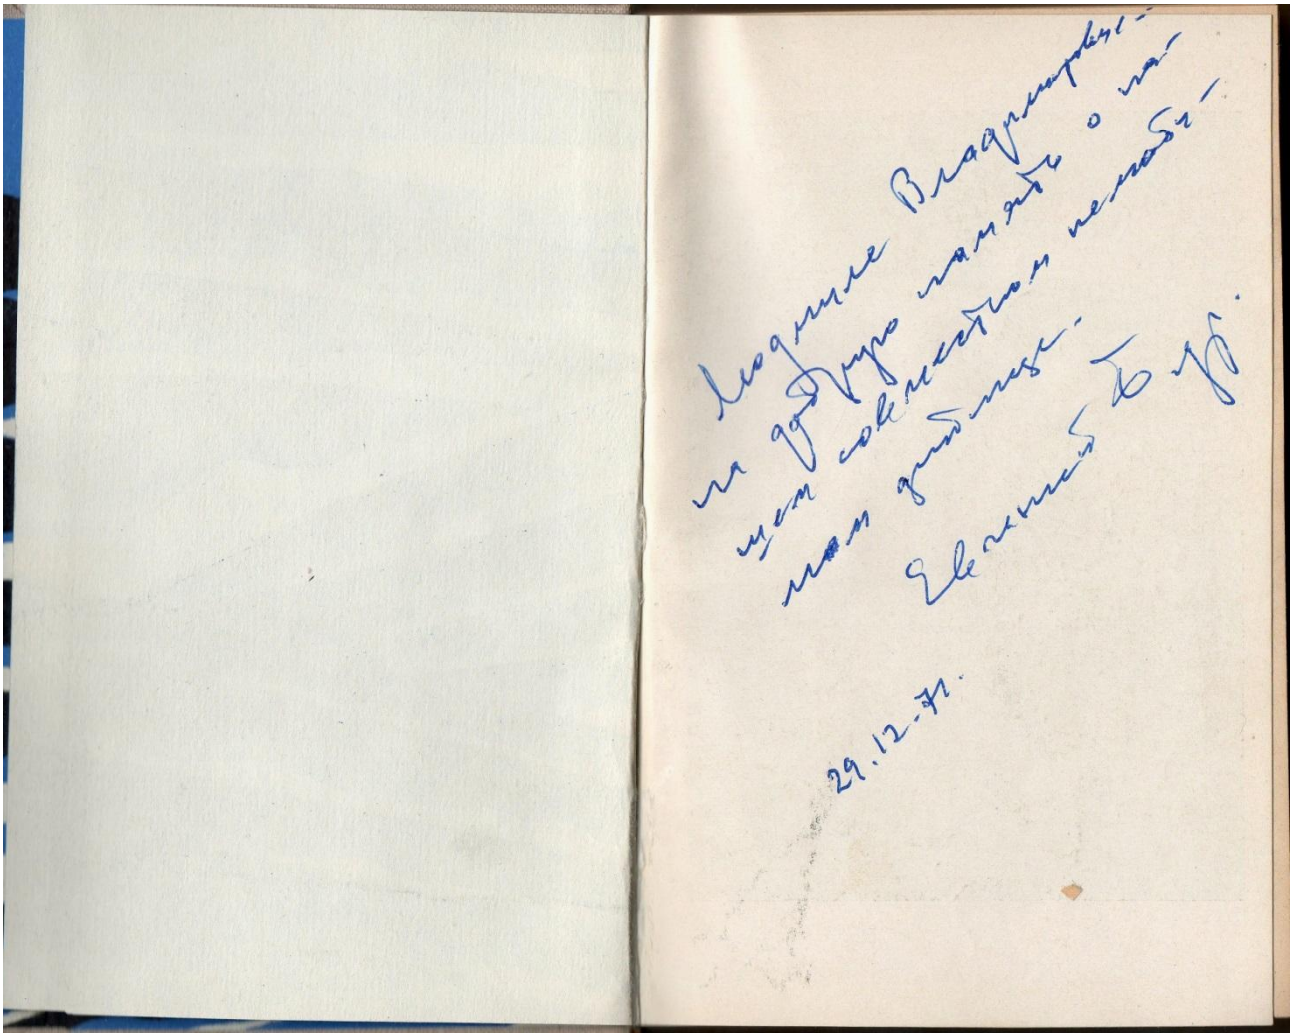 Людмиле Владимировне –
на добрую память о на-
шем совместном
ном
Евгений
29.12.71.